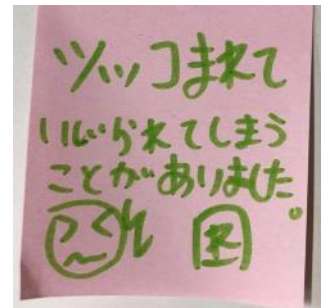 ツッコまれて
いじられてしまう
ことがありました。